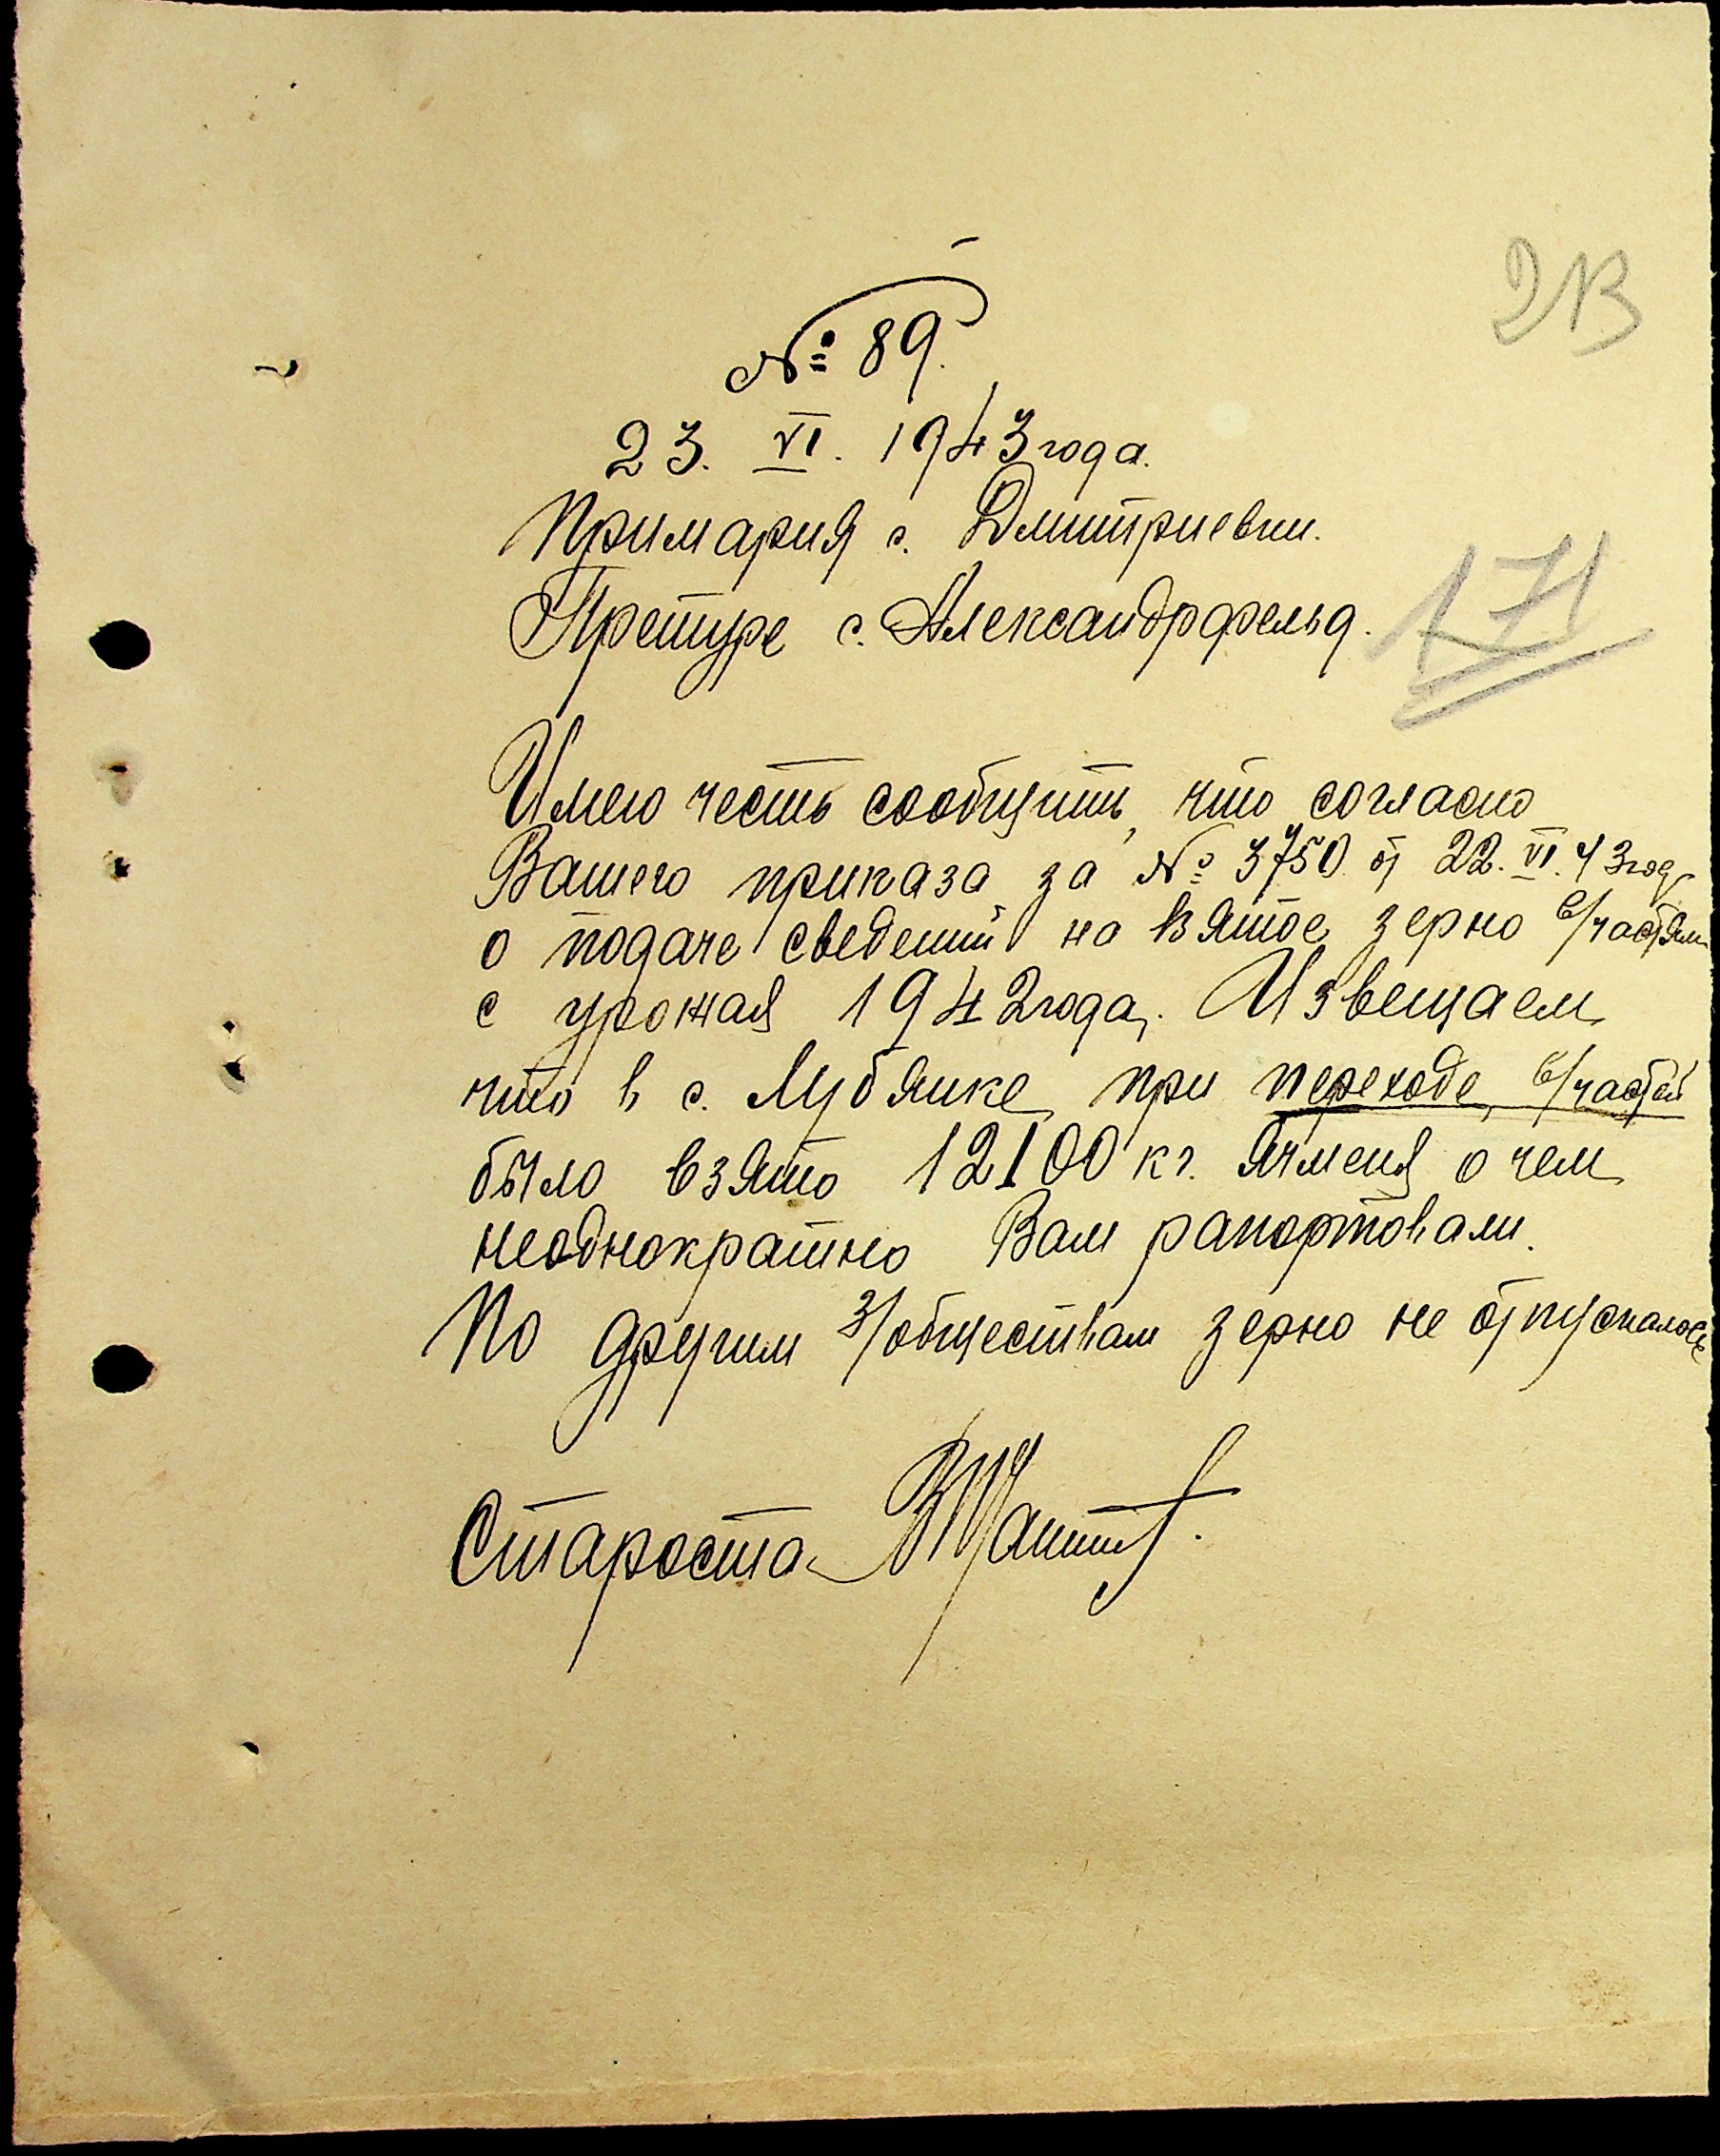 № 89.
213
23. VI. 1943 года.
Примария с. Дмитриевки.
Претуре с. Александрфельд.
171
Имею честь сообщить, что согласно
Вашего приказа за № 3750 от 22. VI. 43 год
о подаче сведений на взятое зерно в/частями
с урожая 1942 года. Извещаем
что в с. Лубянке при переходе в/частей
было взято 12100 кг. ячменя о чем
неоднократно Вам рапортовали.
По другим з/обществам зерно не отпускалось
Староста